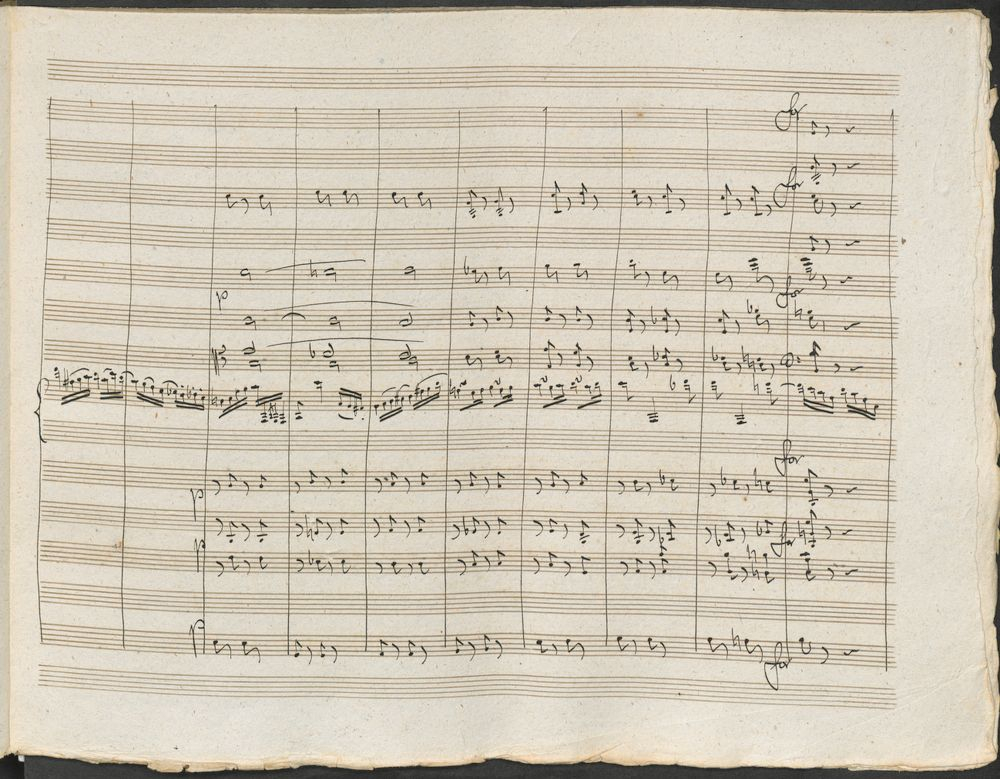 for
for
p
for
for
p
for
p
p
for